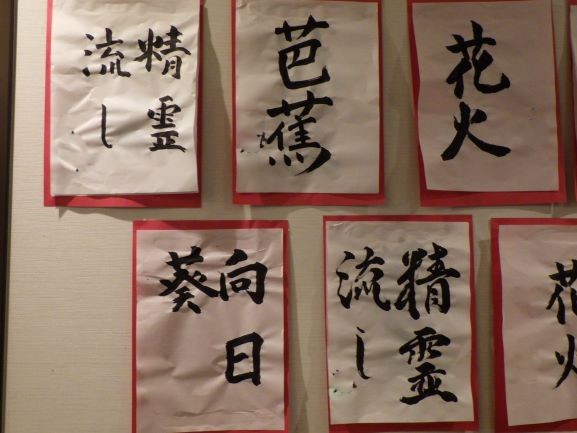 精霊
流し
芭蕉
花火
向日
葵
精霊
流し
花火